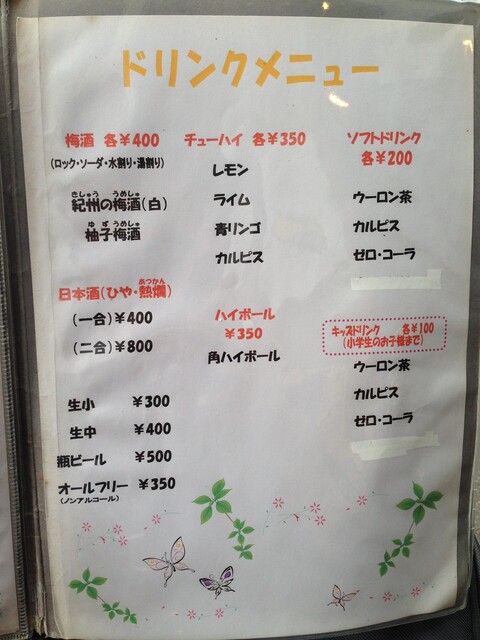 ドリンクメニュー
梅酒 各¥400
(ロック・ソーダ・水割り・湯割り)
きしゅう うめしゅ
紀州の梅酒(白)
ゆずうめしゅ
柚子梅酒
日本酒(ひや・熱燗)
あつかん
(一合)¥400
(二合)¥800
生小 ¥300
生中 ¥400
瓶ビール ¥500
オールフリー ¥350
(ノンアルコール)
チューハイ 各¥350
レモン
ライム
青リンゴ
カルピス
ハイボール
¥350
角ハイボール
ソフトドリンク
各¥200
ウーロン茶
カルピス
ゼロ・コーラ
キッズドリンク 各¥100
(小学生のお子様まで)
ウーロン茶
カルピス
ゼロ・コーラ